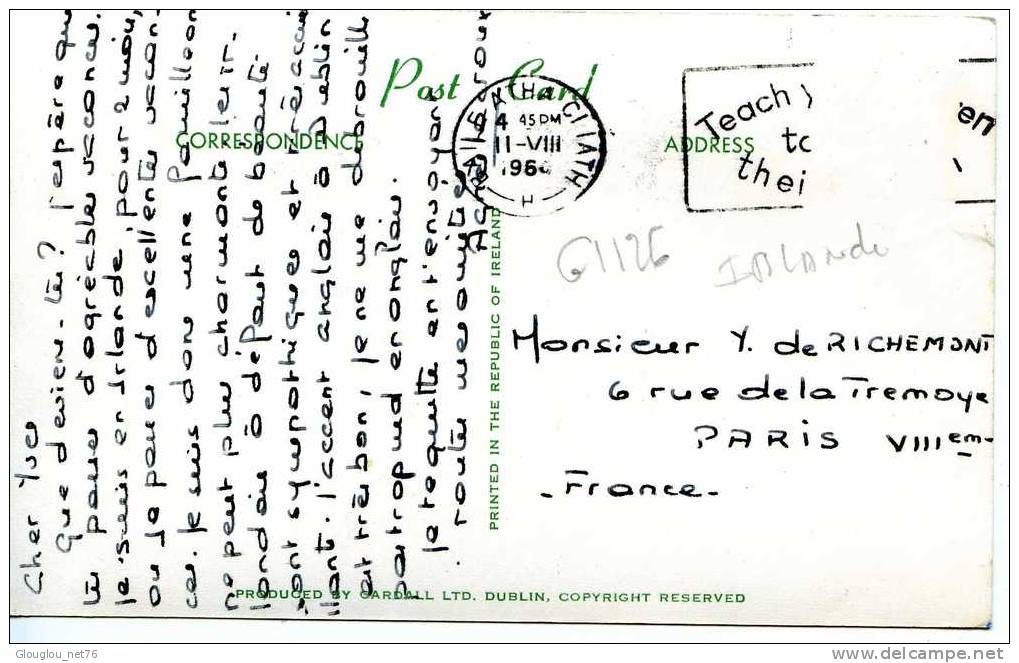 Post Card
CORRESPONDENCE
ADDRESS
Cher Yves
Que deviens-tu? J'espère que
tu passes d'agréables vacances.
Je suis en Irlande, pour 2 mois,
où je passe d'excellentes vacan-
ces. Je suis dans une famille on
ne peut plus charmante. Les Ir-
landais à défaut de beauté
sont sympathiques et très accueil
lants. L'accent anglais à Dublin
est très bon, je ne me débrouille
pas trop mal en anglais.
Je te quitte en t'envoyant
toutes mes amitiés
BAILE ÁTHA CLIATH
4 45 PM
11-VIII
H
Teach
to
thei
en
G1126
IRLANDE
Monsieur Y. de RICHEMONT
6 rue de la Tremoye
PARIS VIIIem-
- France -
PRINTED IN THE REPUBLIC OF IRELAND
PRODUCED BY CARDALL LTD. DUBLIN, COPYRIGHT RESERVED
Glouglou_net76
www.delcampe.net